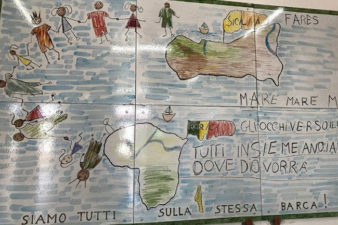 SICILIA
FARES
MARE MARE M
GLI OCCHI VERSO IL
TUTTI INSIEME ANDIA
DOVE DIO VORRA
SIAMO TUTTI SULLA STESSA BARCA!